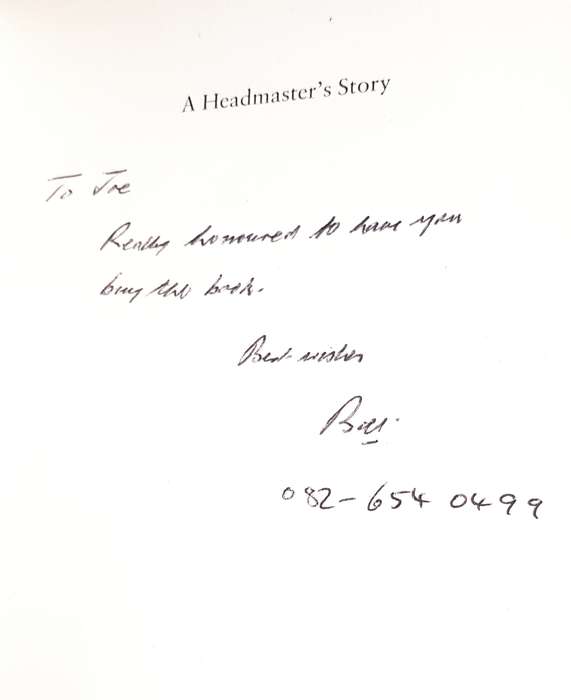 A Headmaster's Story
To Joe
Really honoured to have you
buy the book.
Best wishes
Bill.
082-654 0499